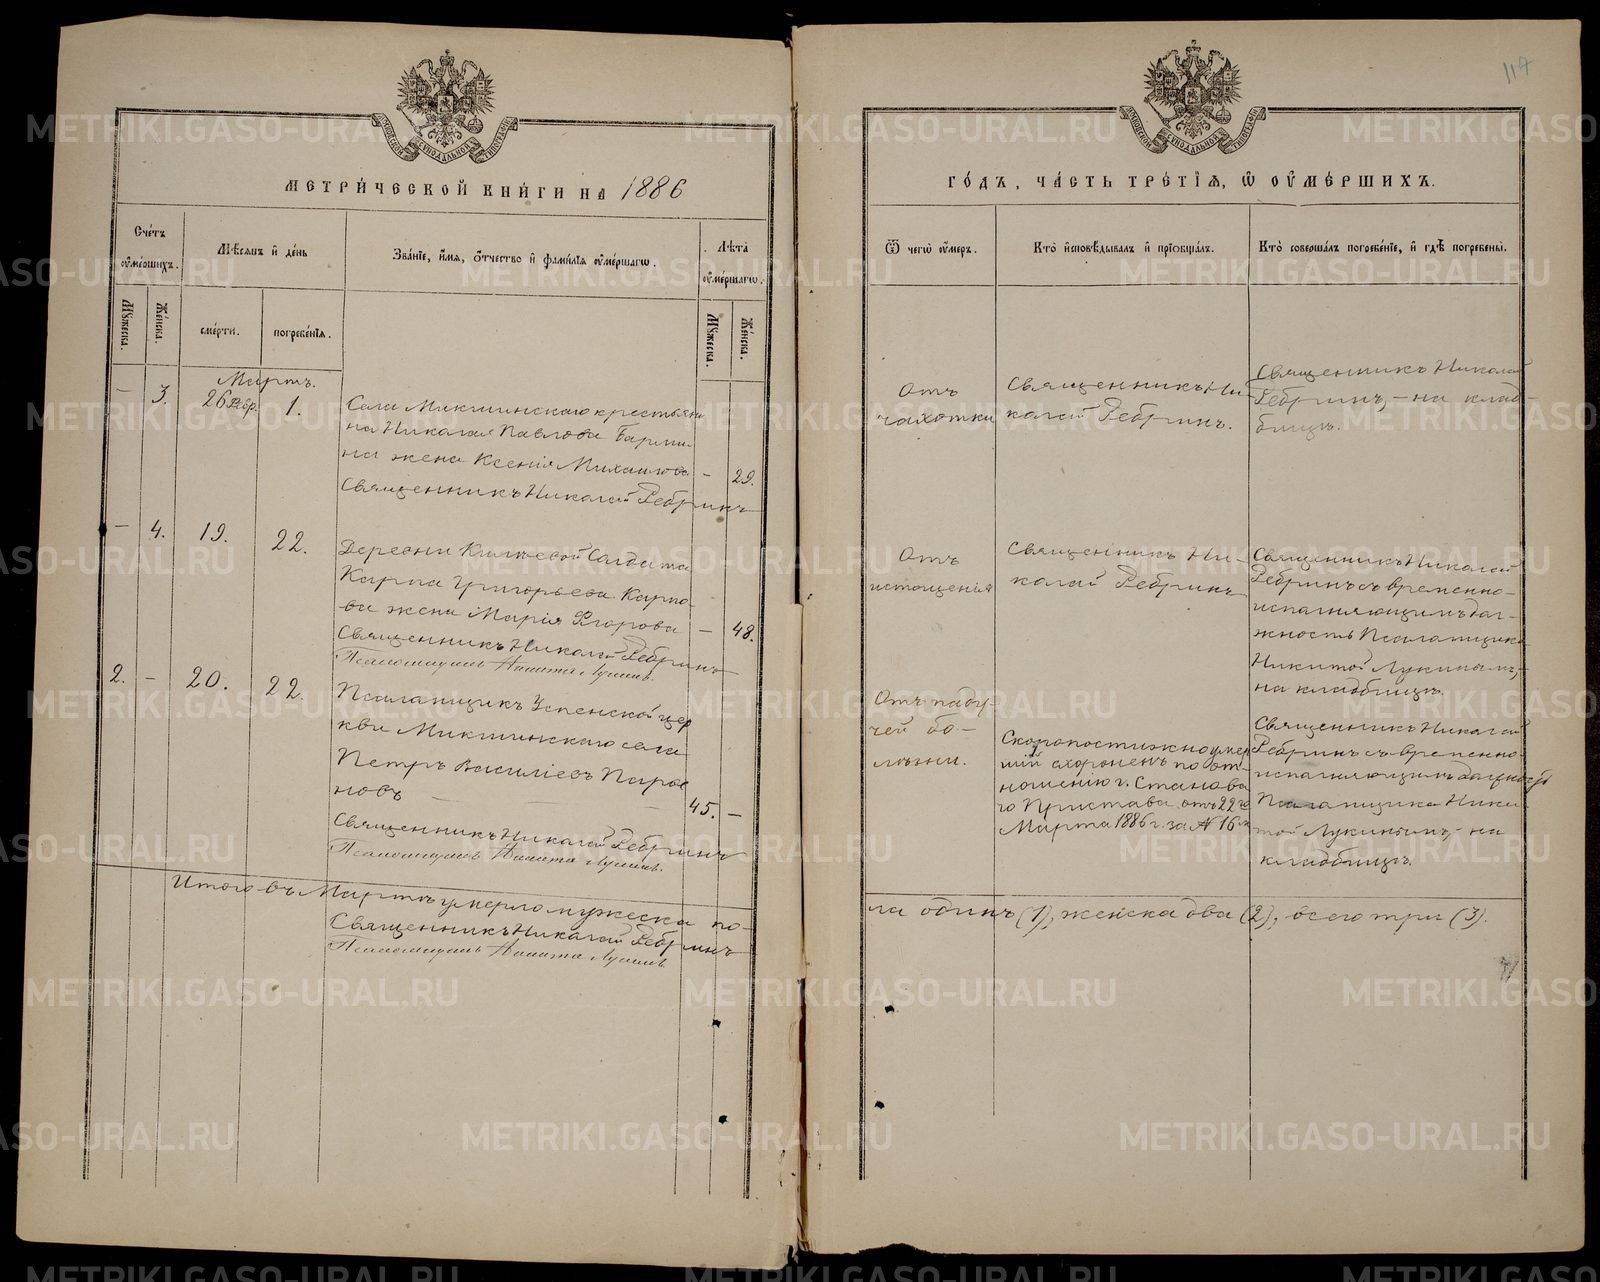 117
МЕТРИ́ЧЕСКОЙ КНИ́ГИ НА 1886
ГО́ДЪ, ЧА́СТЬ ТРЕ́ТІЯ, Ѿ ОУМЕ́РШИХЪ.
Сче́тъ оуме́ршихъ.
Мѣсяцъ и де́нь
Зва́ніе, и́мя, о́тчество и фами́лія оуме́ршагѡ.
Лѣта̀ оуме́ршагѡ.
Мꙋжеска.
Же́нска.
сме́рти.
погребе́нія.
Мꙋжеска.
Же́нска.
Ѿ чегѡ̀ оу́меръ.
Кто̀ и́сповѣдывалъ и прїѡбща́лъ.
Кто̀ соверша́лъ погребе́ніе, и гдѣ̀ погребены̀.
Мартъ.
– 3. 26 Февр. 1.
Села Микшинскаго крестьяни
на Николая Павлова Барми
на жена Ксенія Михаилова – 29.
Священникъ Николай Ребринъ
Отъ
чахотки
Священникъ Ни
колай Ребринъ.
Священникъ Николай
Ребринъ, – на клад-
бищѣ.
– 4. 19. 22.
Деревни Солдата
Карпа Григорьева Карпо-
ва жена Марія Егорова – 48.
Священникъ Николай Ребринъ
Псаломщикъ Никита Лукинъ.
Отъ
истощенія
Священникъ Ни-
колай Ребринъ
Священникъ Николай
Ребринъ съ временно-
исправляющимъ дол-
жность Псаломщика
Никитой Лукинымъ,
на кладбищѣ.
2. – 20. 22.
Псаломщикъ Успенской цер
кви Микшинскаго села
Петръ Василіевъ Парѳе
новъ 45. –
Священникъ Николай Ребринъ
Псаломщикъ Никита Лукинъ.
Отъ паду-
чей бо-
лѣзни.
Скоропостижно умер
шій схороненъ по от-
ношенію г. Станова
го Пристава отъ 22го
Марта 1886 г. за № 16
Священникъ Николай
Ребринъ съ временно-
исправляющимъ должность
Псаломщика Ники
той Лукинымъ, на
кладбищѣ.
Итого въ Мартѣ умерло мужеска по-
ла одинъ (1), женска два (2), всего три (3).
Священникъ Николай Ребринъ
Псаломщикъ Никита Лукинъ.
METRIKI.GASO-URAL.RU